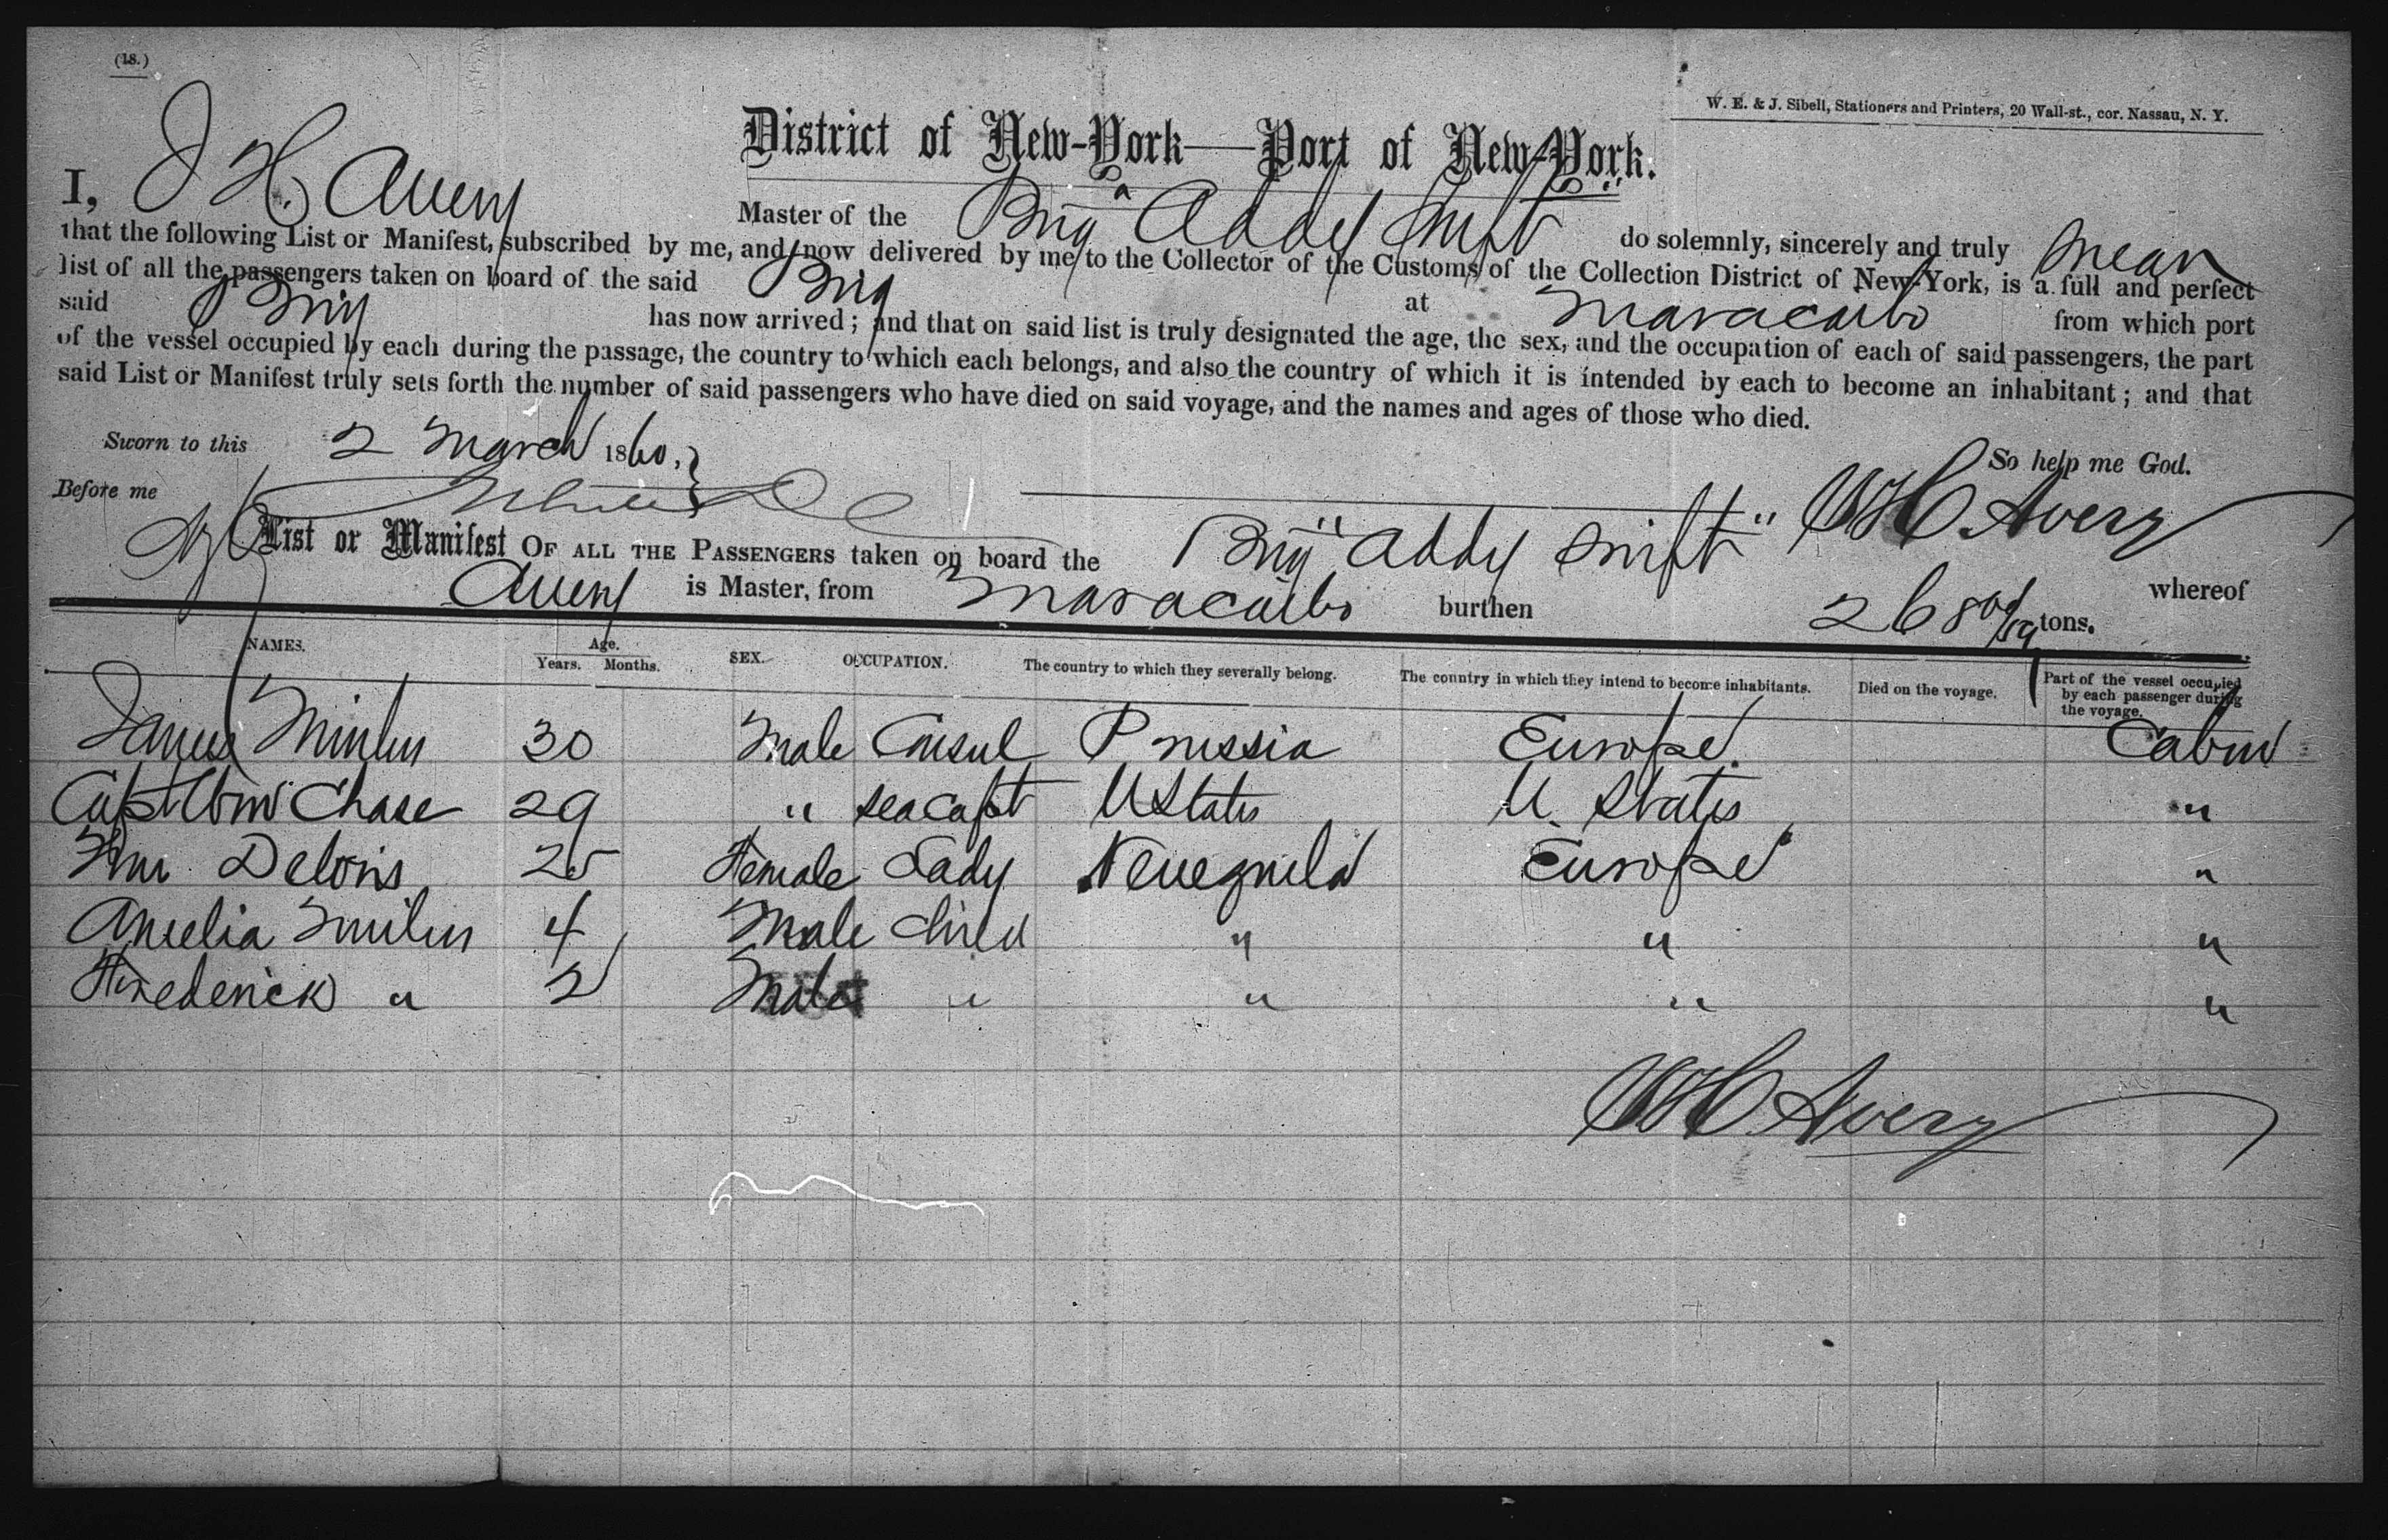 (18.)
W. E. & J. Sibell, Stationers and Printers, 20 Wall-st., cor. Nassau, N. Y.
District of New-York—Port of New-York.
I, J H. Avery Master of the Brig "Addy Swift" do solemnly, sincerely and truly swear
that the following List or Manifest, subscribed by me, and now delivered by me to the Collector of the Customs of the Collection District of New-York, is a full and perfect
list of all the passengers taken on board of the said Brig at Maracaibo from which port
said Brig has now arrived; and that on said list is truly designated the age, the sex, and the occupation of each of said passengers, the part
of the vessel occupied by each during the passage, the country to which each belongs, and also the country of which it is intended by each to become an inhabitant; and that
said List or Manifest truly sets forth the number of said passengers who have died on said voyage, and the names and ages of those who died.
Sworn to this 2 March 1860,
So help me God.
Before me
H Avery
List or Manifest OF ALL THE PASSENGERS taken on board the Brig "Addy Swift" whereof
Avery is Master, from Maracaibo burthen 268 tons.
NAMES. Age. Years. Months. SEX. OCCUPATION. The country to which they severally belong. The country in which they intend to become inhabitants. Died on the voyage. Part of the vessel occupied by each passenger during the voyage.
30 Male Consul Prussia Europe Cabin
Capt Wm Chase 29 " Sea Capt U States U. States "
Deloris 25 Female Lady Venezuela Europe "
Amelia 4 Male Child " " "
Frederick " 2 Male " " " "
H Avery